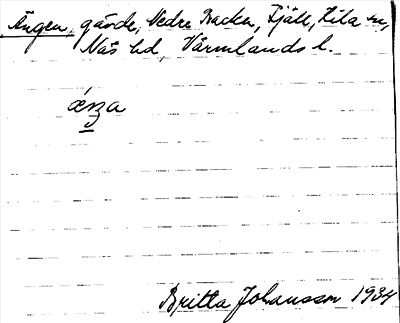 Ängen, gärde, Nedre Backen, Fjäll, Kila sn,
Näs hd, Värmlands l.
æŋa
Britta Johansson 1934